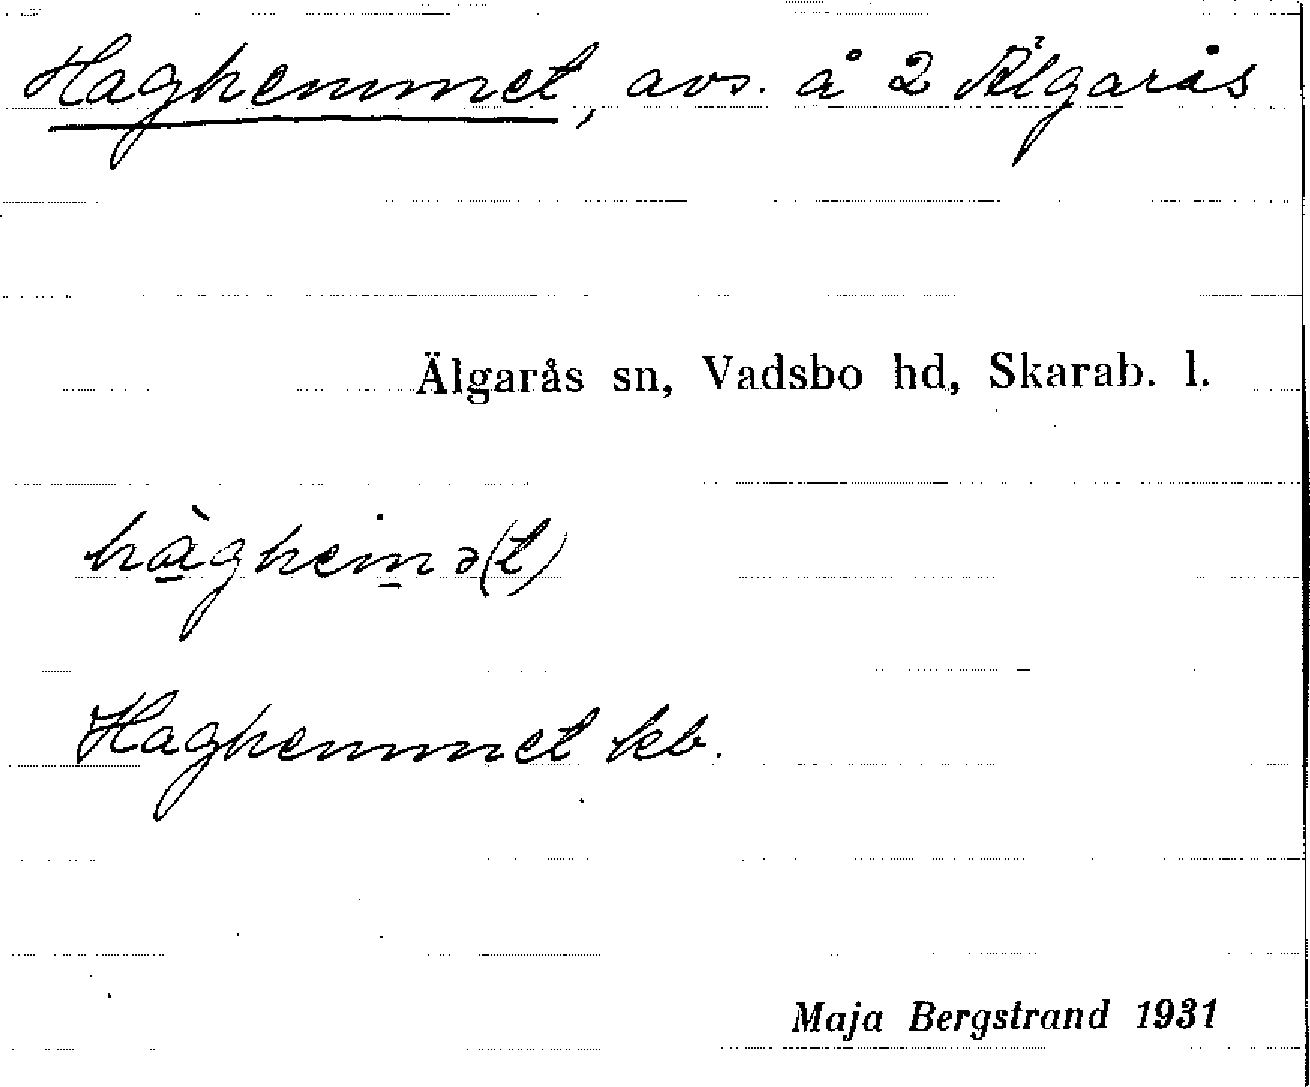 Haghemmet, avs. å 2 Älgarås
Älgarås sn, Vadsbo hd, Skarab. l.
hàghem̲ə(t)
Haghemmet kb.
Maja Bergstrand 1931